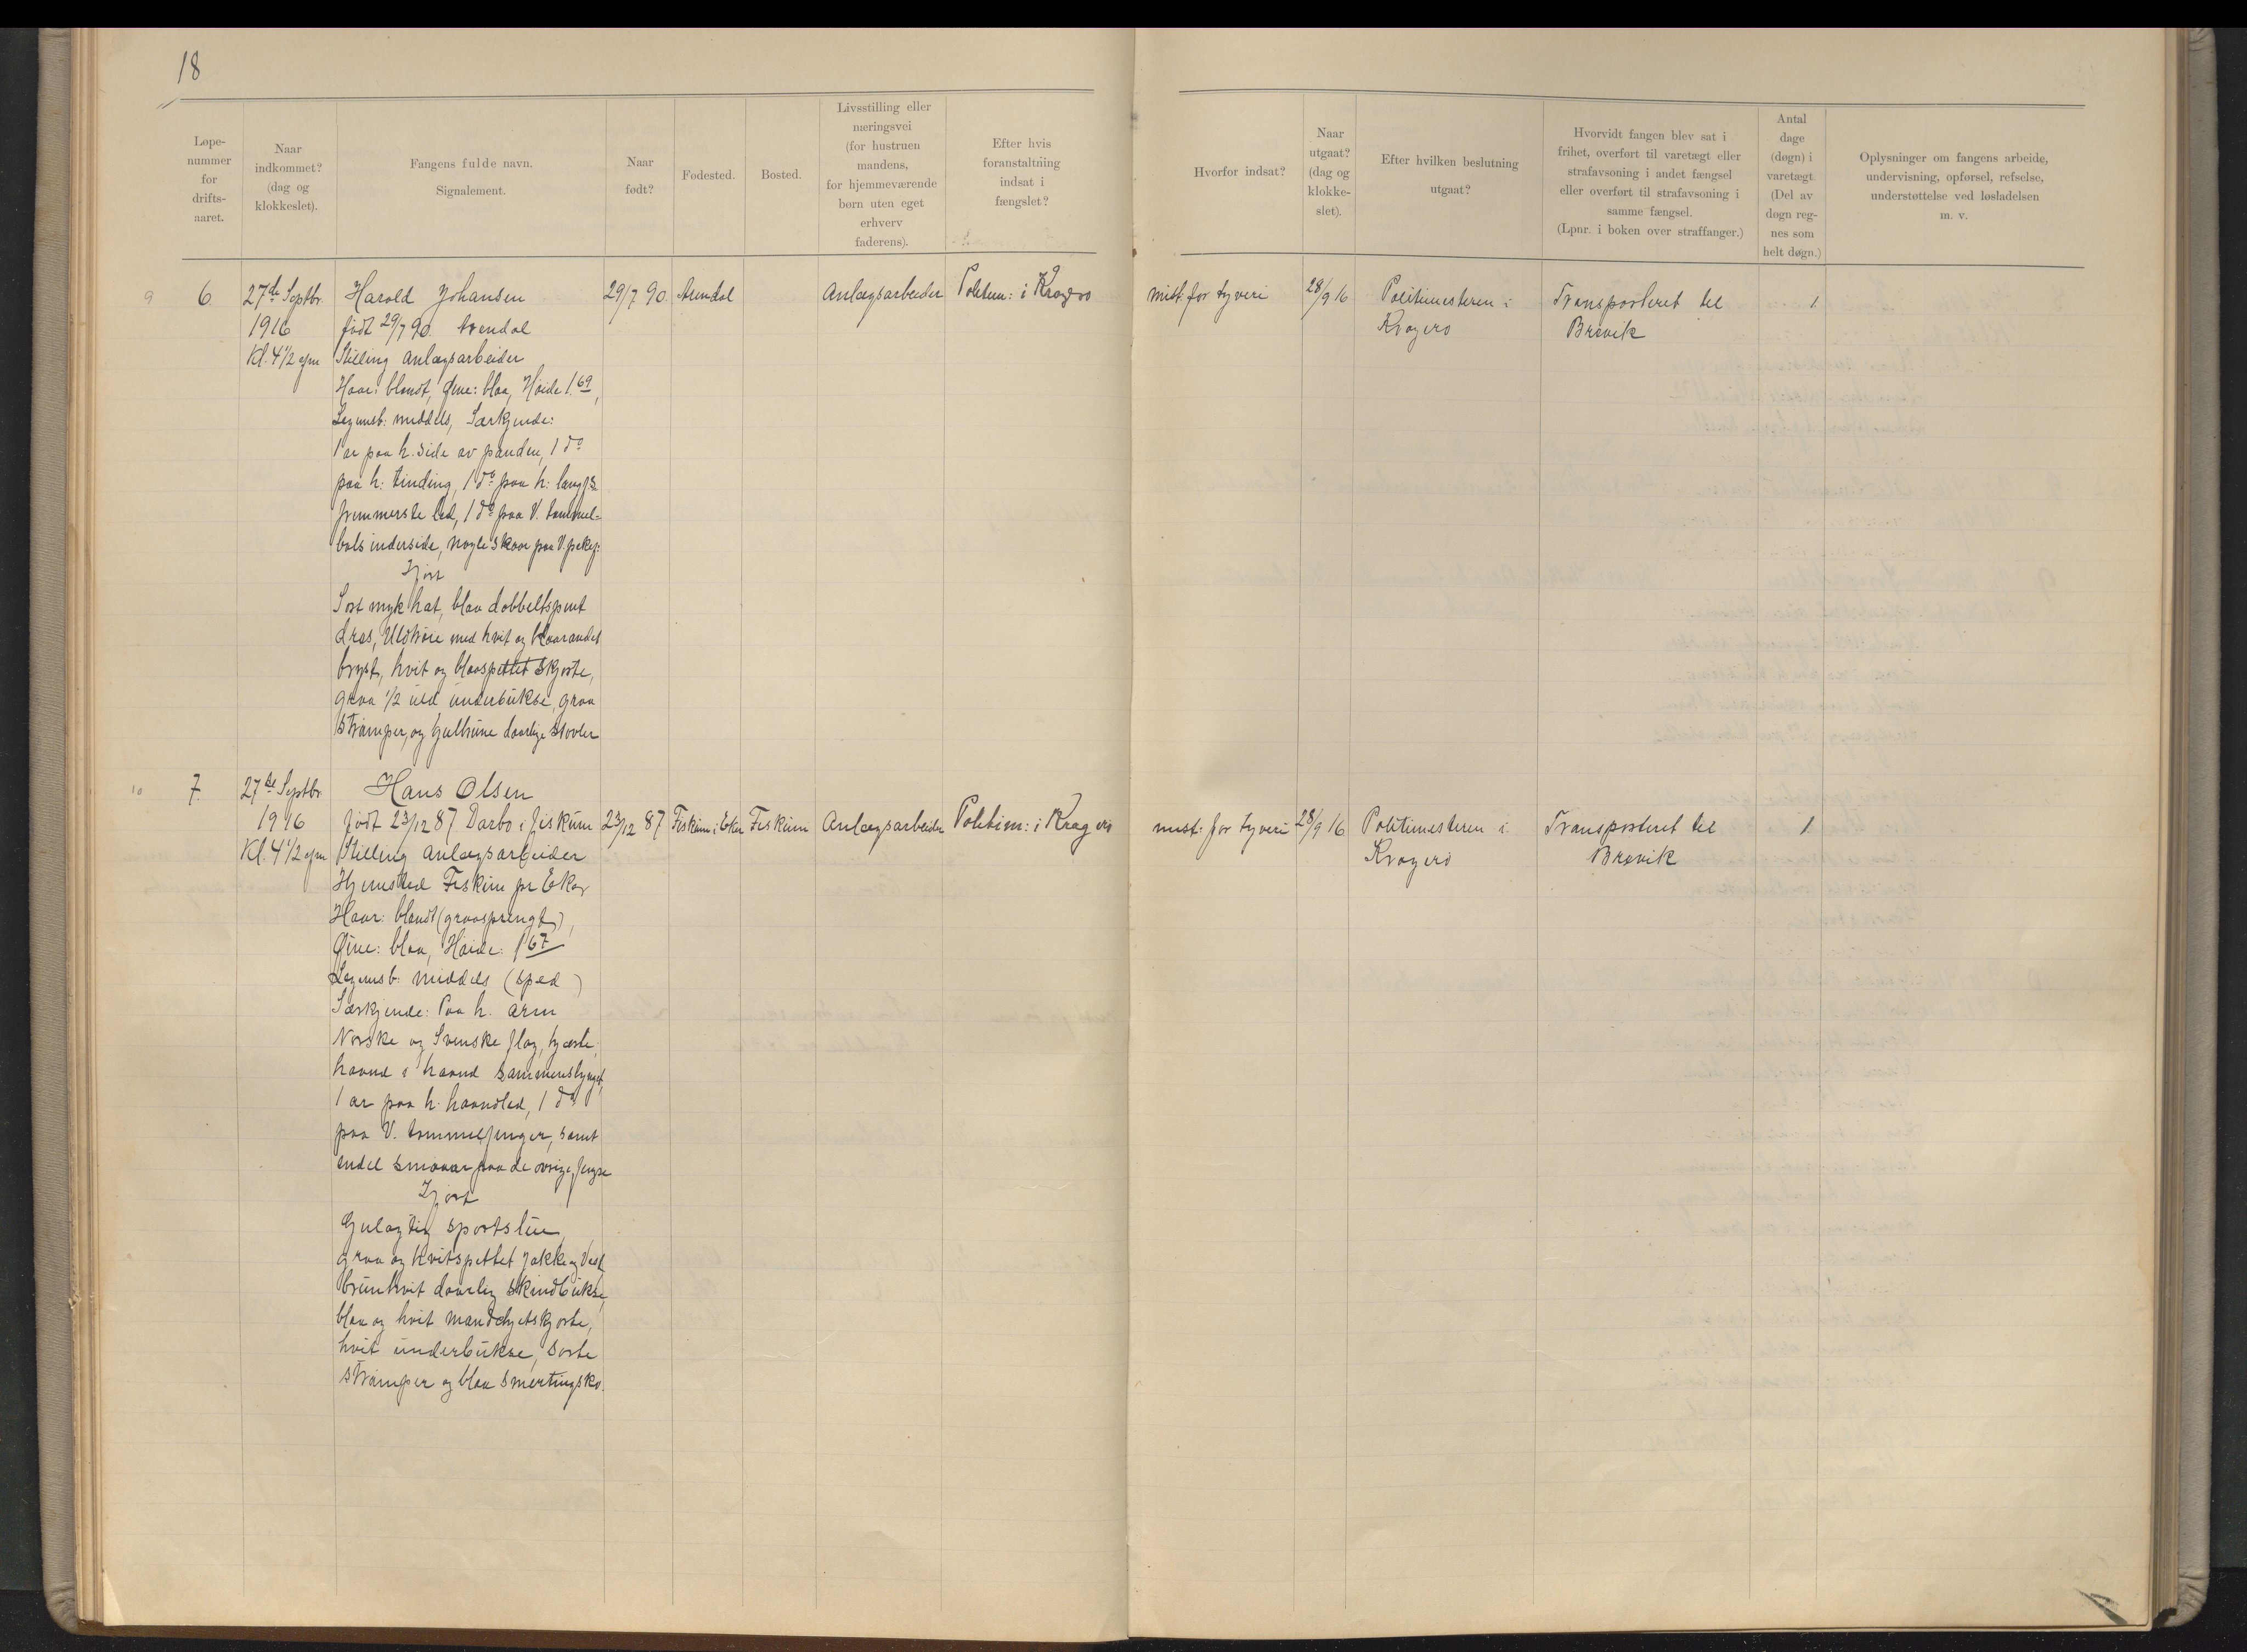 18
Løpe-
nummer
for
drifts-
aaret.
Naar
indkommet?
(dag og
klokkeslet).
Fangens fulde navn.
Signalement.
Naar
født?
Fødested.
Bosted.
Livsstilling eller
næringsvei
(for hustruen
mandens,
for hjemmeværende
børn uten eget
erhverv
faderens).
Efter hvis
foranstaltning
indsat i
fængslet?
Hvorfor indsat?
Naar
utgaat?
(dag og
klokke-
slet).
Efter hvilken beslutning
utgaat?
Hvorvidt fangen blev sat i
frihet, overført til varetægt eller
strafavsoning i andet fængsel
eller overført til strafavsoning i
samme fængsel.
(Lpnr. i boken over straffanger.)
Antal
dage
(døgn) i
varetægt.
(Del av
døgn reg-
nes som
helt døgn.)
Oplysninger om fangens arbeide,
undervisning, opførsel, refselse,
understøttelse ved løsladelsen
m. v.
9
6
27de Septbr.
1916
Kl. 4 1/2 efm
Harald Johansen
født 29/7 90. Arendal
Stilling Anlægsarbeider
Haar: blondt, Øine: blaa, Høide 1.69,
Legemsb: middels, Særkjende:
1 ar paa h. side av panden, 1 do
paa h: tinding, 1 do paa h: langf:s
fremmerste led, 1 do paa V. tommel-
bals inderside, nogle skaar paa V. pekef:
Iført
Sort myk hat, blaa dobbeltspent
dres, Uldtrøie med hvit og blaarandet
bryst, hvit og blaaspettet skjorte,
graa 1/2 uld underbukse, graa
strømper, og gulbrune daarlige støvler
29/7 90.
Arendal
Anlægsarbeider
Politim: i Kragerø
mist: for tyveri
28/9 16
Politimesteren i
Kragerø
Transporteret til
Brevik
1
10
7.
27de Septbr
1916
Kl. 4 1/2 efm
Hans Olsen
født 23/12 87 Darbo i Fiskum
Stilling Anlægsarbeider
Hjemsted Fiskum pr Eker
Haar: blondt (graasprengt),
Øine: blaa, Høide: 1 67
Legemsb: middels (sped)
Særkjende: Paa h. arm
Norske og Svenske flag, hjerte,
haand i haand sammenslynget,
1 ar paa h. haandled, 1 do
paa V. tommelfinger, samt
endel smaaar paa de øvrige fingre
Iført
Gulagtig sportslue,
graa og hvitspettet jakke og Vest,
brunhvit daarlig skindbukse,
blaa og hvit mandchetskjorte,
hvit underbukse, sorte
strømper og blaa smertingsko.
23/12 87
Fiskum i Eker
Fiskum
Anlægsarbeider
Politim: i Kragerø
mist: for tyveri
28/9 16
Politimesteren i
Kragerø
Transporteret til
Brevik
1